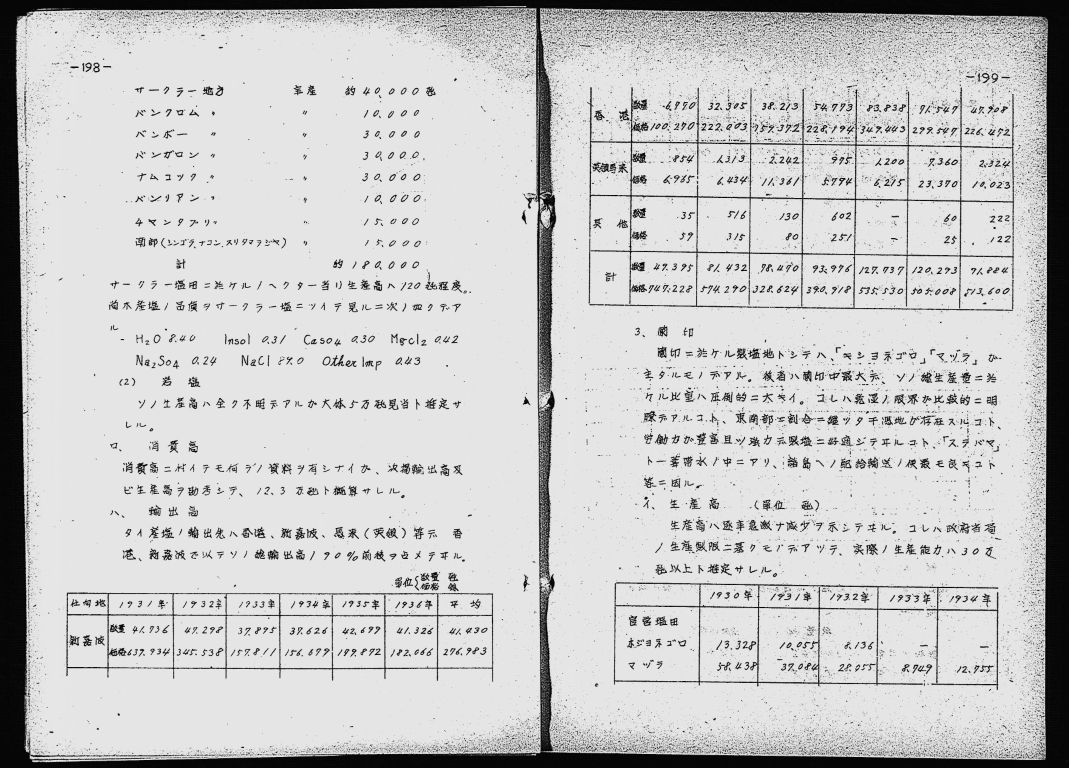 -198-
サークラー地方 年産 約40,000瓲
バンクロム 〃 〃 10,000
バンボー 〃 〃 30,000
バンガロン 〃 〃 30,000
ナムコック 〃 〃 30,000
バンリアン 〃 〃 10,000
〃 〃 15,000
〃 15,000
計 約180,000
サークラー塩田ニ於ケル1ヘクター当リ生産高ハ120瓲程度。
尚本産塩ノ品質ヲサークラー塩ニツイテ見ルニ次ノ如クデア
ル
- H₂O 8.40 Insol 0.31 CaSO₄ 0.30 MgCl₂ 0.42
Na₂SO₄ 0.24 NaCl Other Imp 0.43
(2) 岩塩
ソノ生産高ハ全ク不明デアルガ大体5万瓲見当ト推定サ
レル。
ロ、 消費高
消費高ニ付イテモ何ラノ資料ヲ有シナイガ、次掲輸出高及
ビ生産高ヲ勘考シテ、12.3万瓲ト概算サレル。
ハ、 輸出高
タイ産塩ノ輸出先ハ香港、新嘉坡、馬来(英領)等デ 香
港、新嘉坡デ以テソノ総輸出高ノ90%前後ヲ占メテヰル。
単位 数量 瓲 価格 銖
仕向地 1931年 1932年 1933年 1934年 1935年 1936年 平均
新嘉坡 数量 41.736 47.298 37.895 37.626 42.699 41.326 41.430
価格 637.934 345.538 157.811 156.679 179.872 182.066 276.983
-199-
香港 数量 6.770 32.305 38.213 54.773 83.838 71.547 47.908
価格 100.270 222.003 159.372 228.194 349.443 299.547 226.472
英領馬来 数量 854 1.313 2.242 975 1.200 7.360 2.324
価格 6.965 6.434 11.361 5.794 6.215 23.370 10.023
其他 数量 35 516 130 602 — 60 222
価格 59 315 80 251 — 25 122
計 数量 49.395 81.432 78.470 93.976 127.737 120.293 91.884
価格 747.228 574.290 328.624 390.918 535.530 505.008 513.600
3. 蘭印
蘭印ニ於ケル製塩地トシテハ、「キシヨネゴロ」「マヅラ」ガ
主タルモノデアル。後者ハ蘭印中最大デ、ソノ総生産量ニ於
ケル比重ハ圧倒的ニ大キイ。コレハ乾湿ノ限界ガ比較的ニ明
瞭デアルコト、東南部ニ割合ニ纏ツタ干潟地ガ存在スルコト、
労働力ガ豊富且ツ強力デ製塩ニ好適シテヰルコト、「スラバマ」
ト一葦帯水ノ中ニアリ、諸島ヘノ配給輸送ノ便最モ良キコト
等ニ因ル。
イ. 生産高 (単位 瓲)
生産高ハ逐年急激ナ減少ヲ示シテヰル。コレハ政府当局
ノ生産制限ニ基クモノデアツテ、実際ノ生産能力ハ30万
瓲以上ト推定サレル。
1930年 1931年 1932年 1933年 1934年
官営塩田
ホジヨネゴロ 13.328 10.055 8.136 — —
マヅラ 58.438 37.084 28.055 8.749 12.755